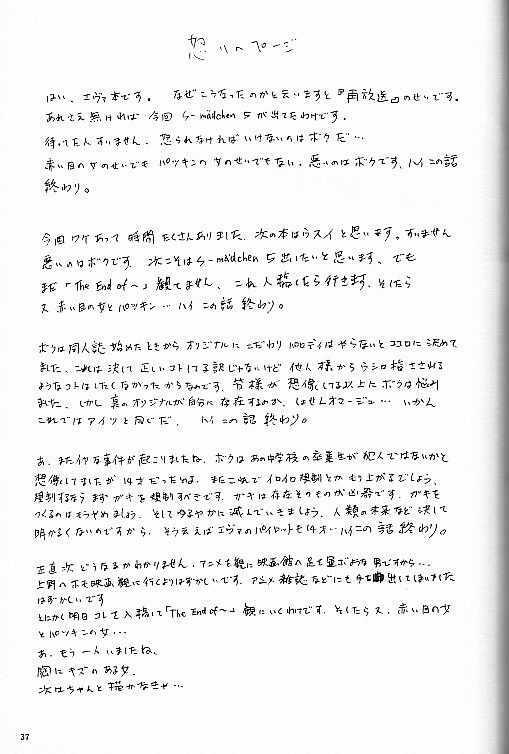 怒りのページ
はい、エヴァ本です。 なぜこうなったのかと云いますと『再放送』のせいです。
あれさえ無ければ 今回 S-mädchen 5 が出てたわけです。
待ってた人すいません、怒られなければいけないのはボクだ…
赤い目の女のせいでも パツキンの女のせいでもない、悪いのはボクです、ハイこの話
終わり。
今回ワケあって 時間たくさんありました、次の本はウスイと思います。すいません
悪いのはボクです、次こそは S-mädchen 5 出したいと思います、でも
まだ「The End of〜」観てません、これ入稿したら行きます、そしたら
又 赤い目の女とパツキン… ハイ この話 終わり。
ボクは同人誌 始めたときから オリジナルに こだわり パロディはやらないと ココロに決めて
ました、これは 決して 正しいコトしてる訳じゃないけど 他人様から うしロ指さされる
ようなコトはしたくなかったからなのです、皆様が 想像してる以上に ボクは悩み
ました、しかし 真のオリジナルが自分に存在するのか、しょせんオマージュ… いかん
これではアイツと同じだ、 ハイ この話 終わり。
あ、また 事件が起こりましたね、ボクは あの中学校の卒業生が 犯人ではないかと
想像してましたが 14才だったわよ、またこれで イロイロ規制とか もり上がるでしょう、
規制するなら まず ガキを規制すべきです、ガキは存在そのものが凶器です、ガキを
つくるのはもうやめましょう、そしてゆるやかに滅んでいきましょう、人類の未来など 決して
明かるくないのですから、そう云えばエヴァのパイロットも14才…ハイこの話 終わり。
正直次 どうなるかわかりません、アニメを観に映画館へ足を運ぶような男ですから…
上野へホモ映画観に行くよりはずかしいです、アニメ雑誌などにも手を出してしまいました
はずかしいです
とにかく明日コレを入稿して「The End of〜」観にいくわけです、そしたら又、赤い目の女
とパツキンの女…
あ、もう一人いましたね、
胸にキズのある女、
次はちゃんと描かなきゃ…
37